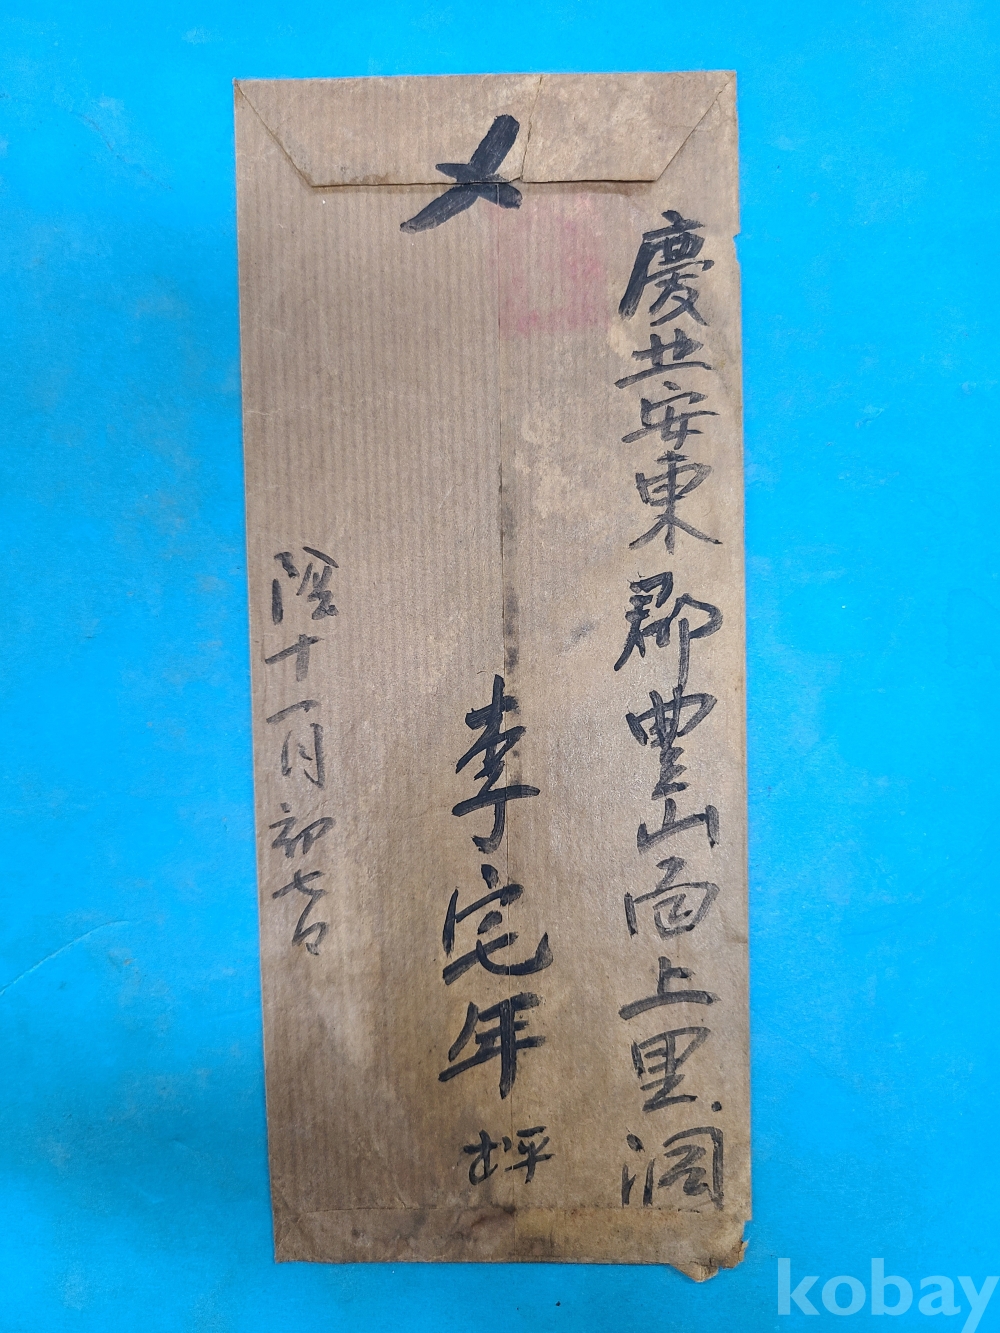 慶北安東郡豊山面上里洞
李宅年
坪
陰十一月初七日
kobay